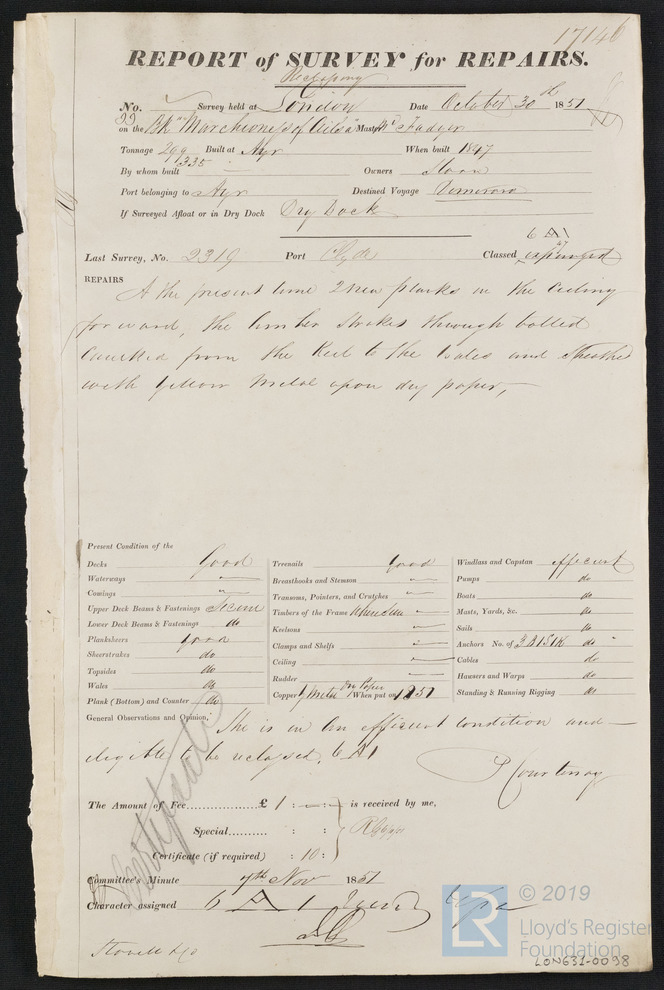 17146
REPORT of SURVEY for REPAIRS.
No. Survey held at London Date October 30th 1851
on the Bk "Marchioness of Ailsa" Master
Tonnage 299 335 Built at Ayr When built 1847
By whom built Owners Sloan
Port belonging to Ayr Destined Voyage Demerara
If Surveyed Afloat or in Dry Dock Dry Dock
6 A 1
Last Survey, No. 2319 Port Clyde Classed expunged
REPAIRS At the present time 2 new planks in the ceiling
forward, the limber strakes through bolted
Caulked from the Keel to the Wales and Sheathed
with Yellow Metal upon dry paper,
Present Condition of the
Decks Good
Waterways
Comings
Upper Deck Beams & Fastenings Secure
Lower Deck Beams & Fastenings do
Planksheers good
Sheerstrakes do
Topsides do
Wales do
Plank (Bottom) and Counter do
Treenails Good
Breasthooks and Stemson
Transoms, Pointers, and Crutches
Timbers of the Frame where seen
Keelsons
Clamps and Shelfs
Ceiling
Rudder
Copper Y Metal Dry Paper When put on 1851
Windlass and Capstan efficient
Pumps do
Boats do
Masts, Yards, &c. do
Sails do
Anchors No. of 3 B 1 S 1 K do
Cables do
Hawsers and Warps do
Standing & Running Rigging do
General Observations and Opinion, She is in an efficient condition and
eligible to be reclassed. 6 A 1
Courtenay
The Amount of Fee £ 1 : — : is received by me,
Special : :
Certificate (if required) : 10 :
Committee's Minute 7th Nov 1851
Character assigned 6 A 1
© 2019
LR
Lloyd's Register
Foundation
LON631-0098